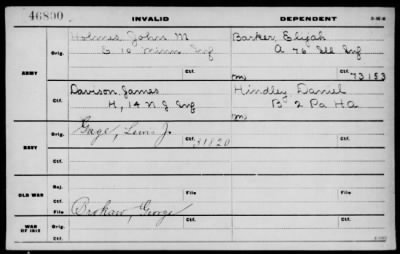 46800
INVALID
DEPENDENT
Holmes, John M
Barker, Elijah
E 10 Minn Inf
A 76 Ill Inf
Orig.
ARMY
m
Ctf.
73153
Davison, James
Hindley, Daniel
Ctf.
H, 14 N.J. Inf
B 2 Pa H A
m
Gage, Lewis J.
Orig.
NAVY
Ctf.
31820
Ctf.
Rej.
OLD WAR
File
File
Ctf.
Brokaw, George
WAR OF 1812
Orig.
Ctf.
Ctf.